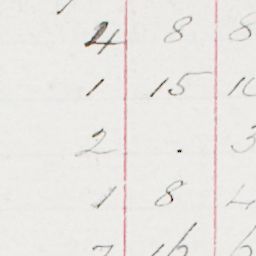 4 8 8
1 15 10
2 . 3
1 8 4
16 6